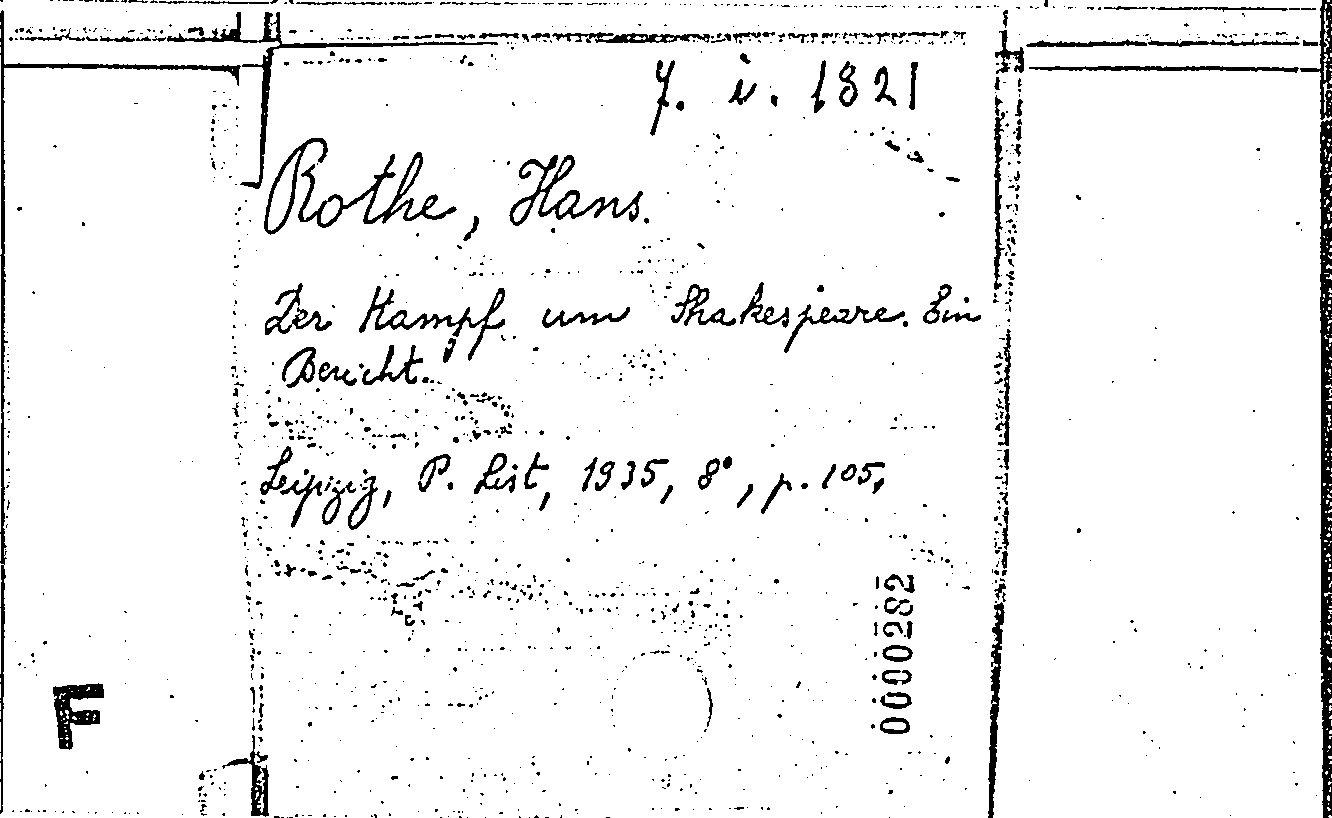 7. i. 1821
Rothe, Hans.
Der Kampf um Shakespeare. Ein
Bericht.
Leipzig, P. List, 1935, 8°, p. 105,
0000282
F